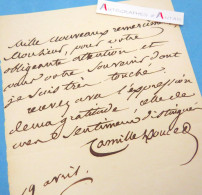 Mille nouveaux remerciements
Monsieur, pour votre
obligeante attention et
pour votre souvenir dont
je suis très touché.
recevez avec l'expression
de ma gratitude, celle de
mes sentiments distingués
Camille Doucet
19 avril.